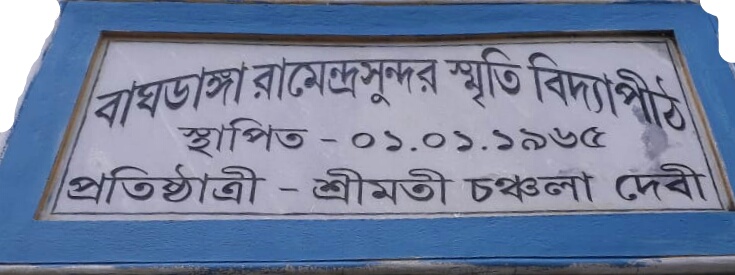 বাঘডাঙ্গা রামেন্দ্রসুন্দর স্মৃতি বিদ্যাপীঠ
স্থাপিত - ০১.০১.১৯৬৫
প্রতিষ্ঠাত্রী - শ্রীমতী চঞ্চলা দেবী